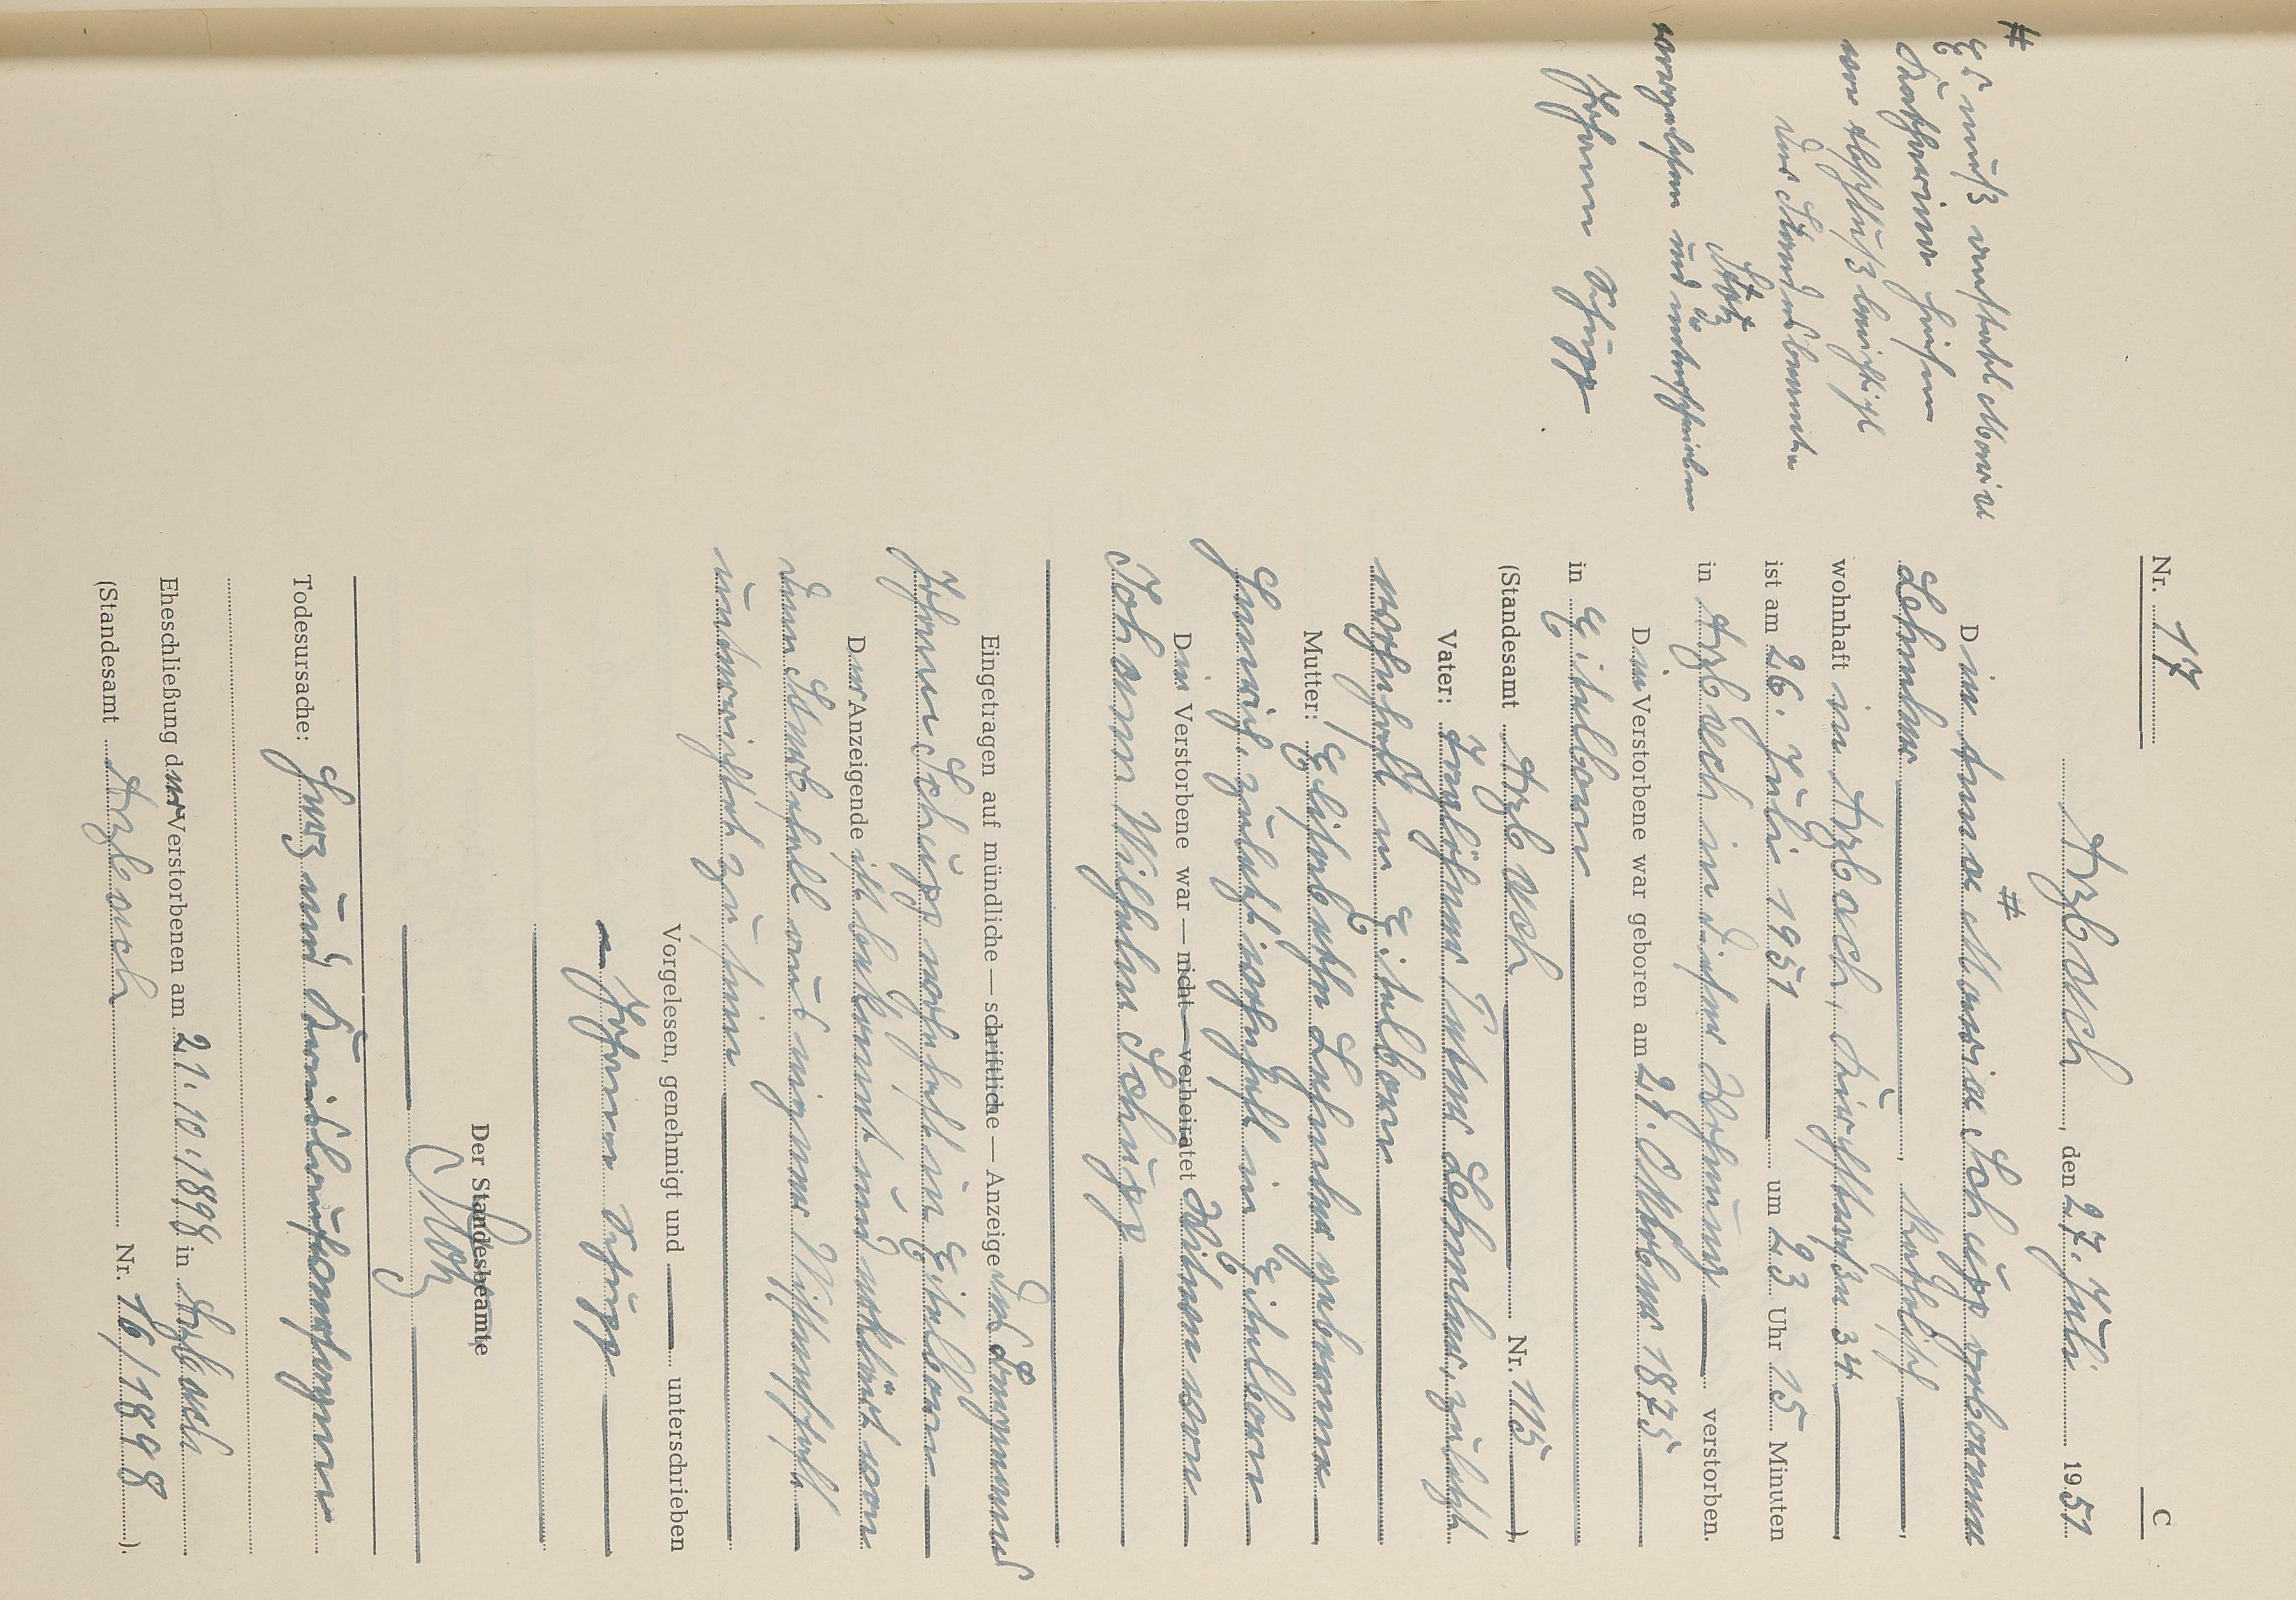 Nr. 17
C
Arzbach, den 27. Juli 1951
Die Anna # Maria Schupp geborene
Lehmler, katholisch,
wohnhaft in Arzbach, Kirchstraße 34
ist am 26. Juli 1951 um 23 Uhr 15 Minuten
in Arzbach in dieser Wohnung verstorben.
Die Verstorbene war geboren am 28. Oktober 1875
in Eitelborn
(Standesamt Arzbach Nr. 115)
Vater: Taglöhner Peter Lehmler, zuletzt
wohnhaft in Eitelborn
Mutter: Elisabetha Lehmler geborene
zuletzt wohnhaft in Eitelborn
Die Verstorbene war — nicht — verheiratet Witwe von
Johann Wilhelm Schupp
Eingetragen auf mündliche — schriftliche — Anzeige des
Johann Schupp wohnhaft in Eitelborn
Der Anzeigende ist bekannt und erklärt von
dem Sterbefall aus eigener Wissenschaft
unterrichtet zu sein
Vorgelesen, genehmigt und unterschrieben
Johann Schupp
Der Standesbeamte
Stotz
Todesursache: Herz und Kreislaufversagen
Eheschließung der Verstorbenen am 21.10.1898 in Arzbach
(Standesamt Arzbach Nr. 16/1898).
#
Es muß anstatt Maria
Katharina heißen
von Abschluß berichtigt
Der Standesbeamte
Stotz
vorgelesen und unterschrieben
Johann Schupp